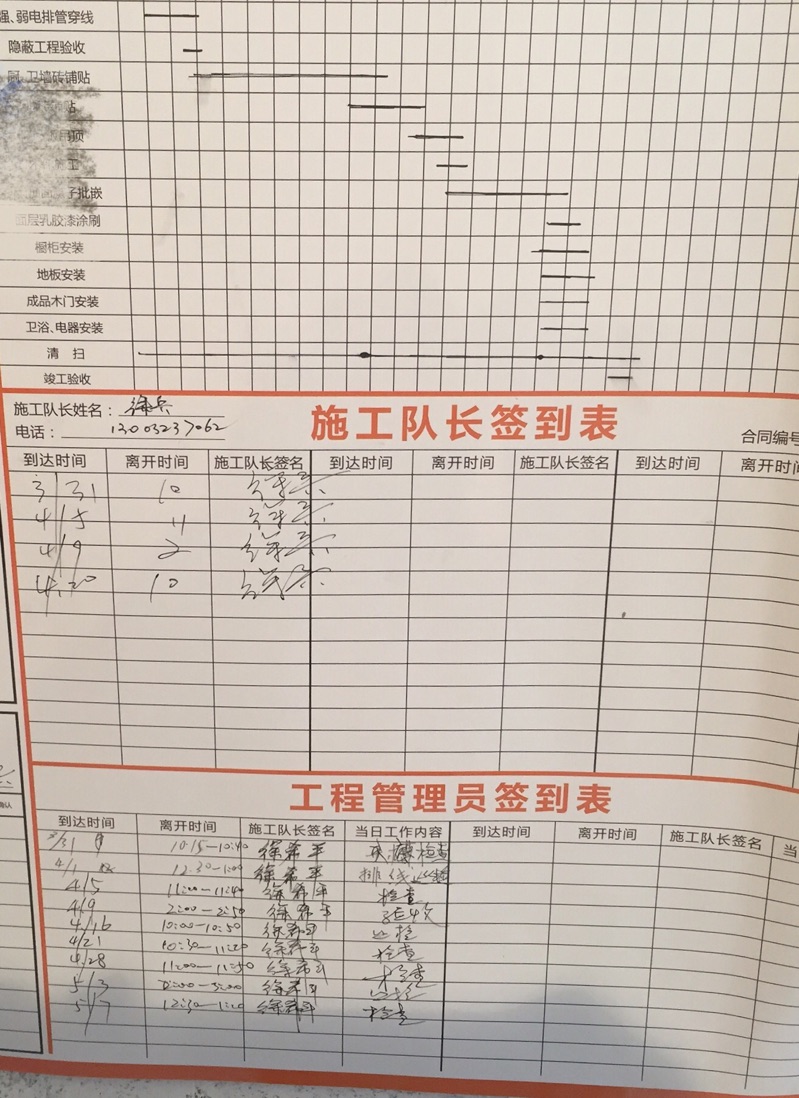 强、弱电排管穿线
隐蔽工程验收
厨、卫墙砖铺贴
贴
顶
工
批嵌
面层乳胶漆涂刷
橱柜安装
地板安装
成品木门安装
卫浴、电器安装
清 扫
竣工验收
施工队长姓名：
电话： 13003237062
施工队长签到表
合同编号
到达时间 离开时间 施工队长签名 到达时间 离开时间 施工队长签名 到达时间 离开时间
3/31 10
4/5 11
4/9 2
4.20 10
工程管理员签到表
到达时间 离开时间 施工队长签名 当日工作内容 到达时间 离开时间 施工队长签名 当
3/31 10:15—10:40 徐希平 检查
4/1 12:30—1:00 徐希平 排线
4/5 11:00—11:40 徐希平 检查
4/9 2:00—2:50 徐希平 验收
4/16 10:00—10:50 徐希平 巡检
4/21 10:30—11:20 徐希平 检查
4/28 11:00—11:50 徐希平 检查
5/3 2:00—3:00 徐希平 巡检
5/7 12:30—1:20 徐希平 检查